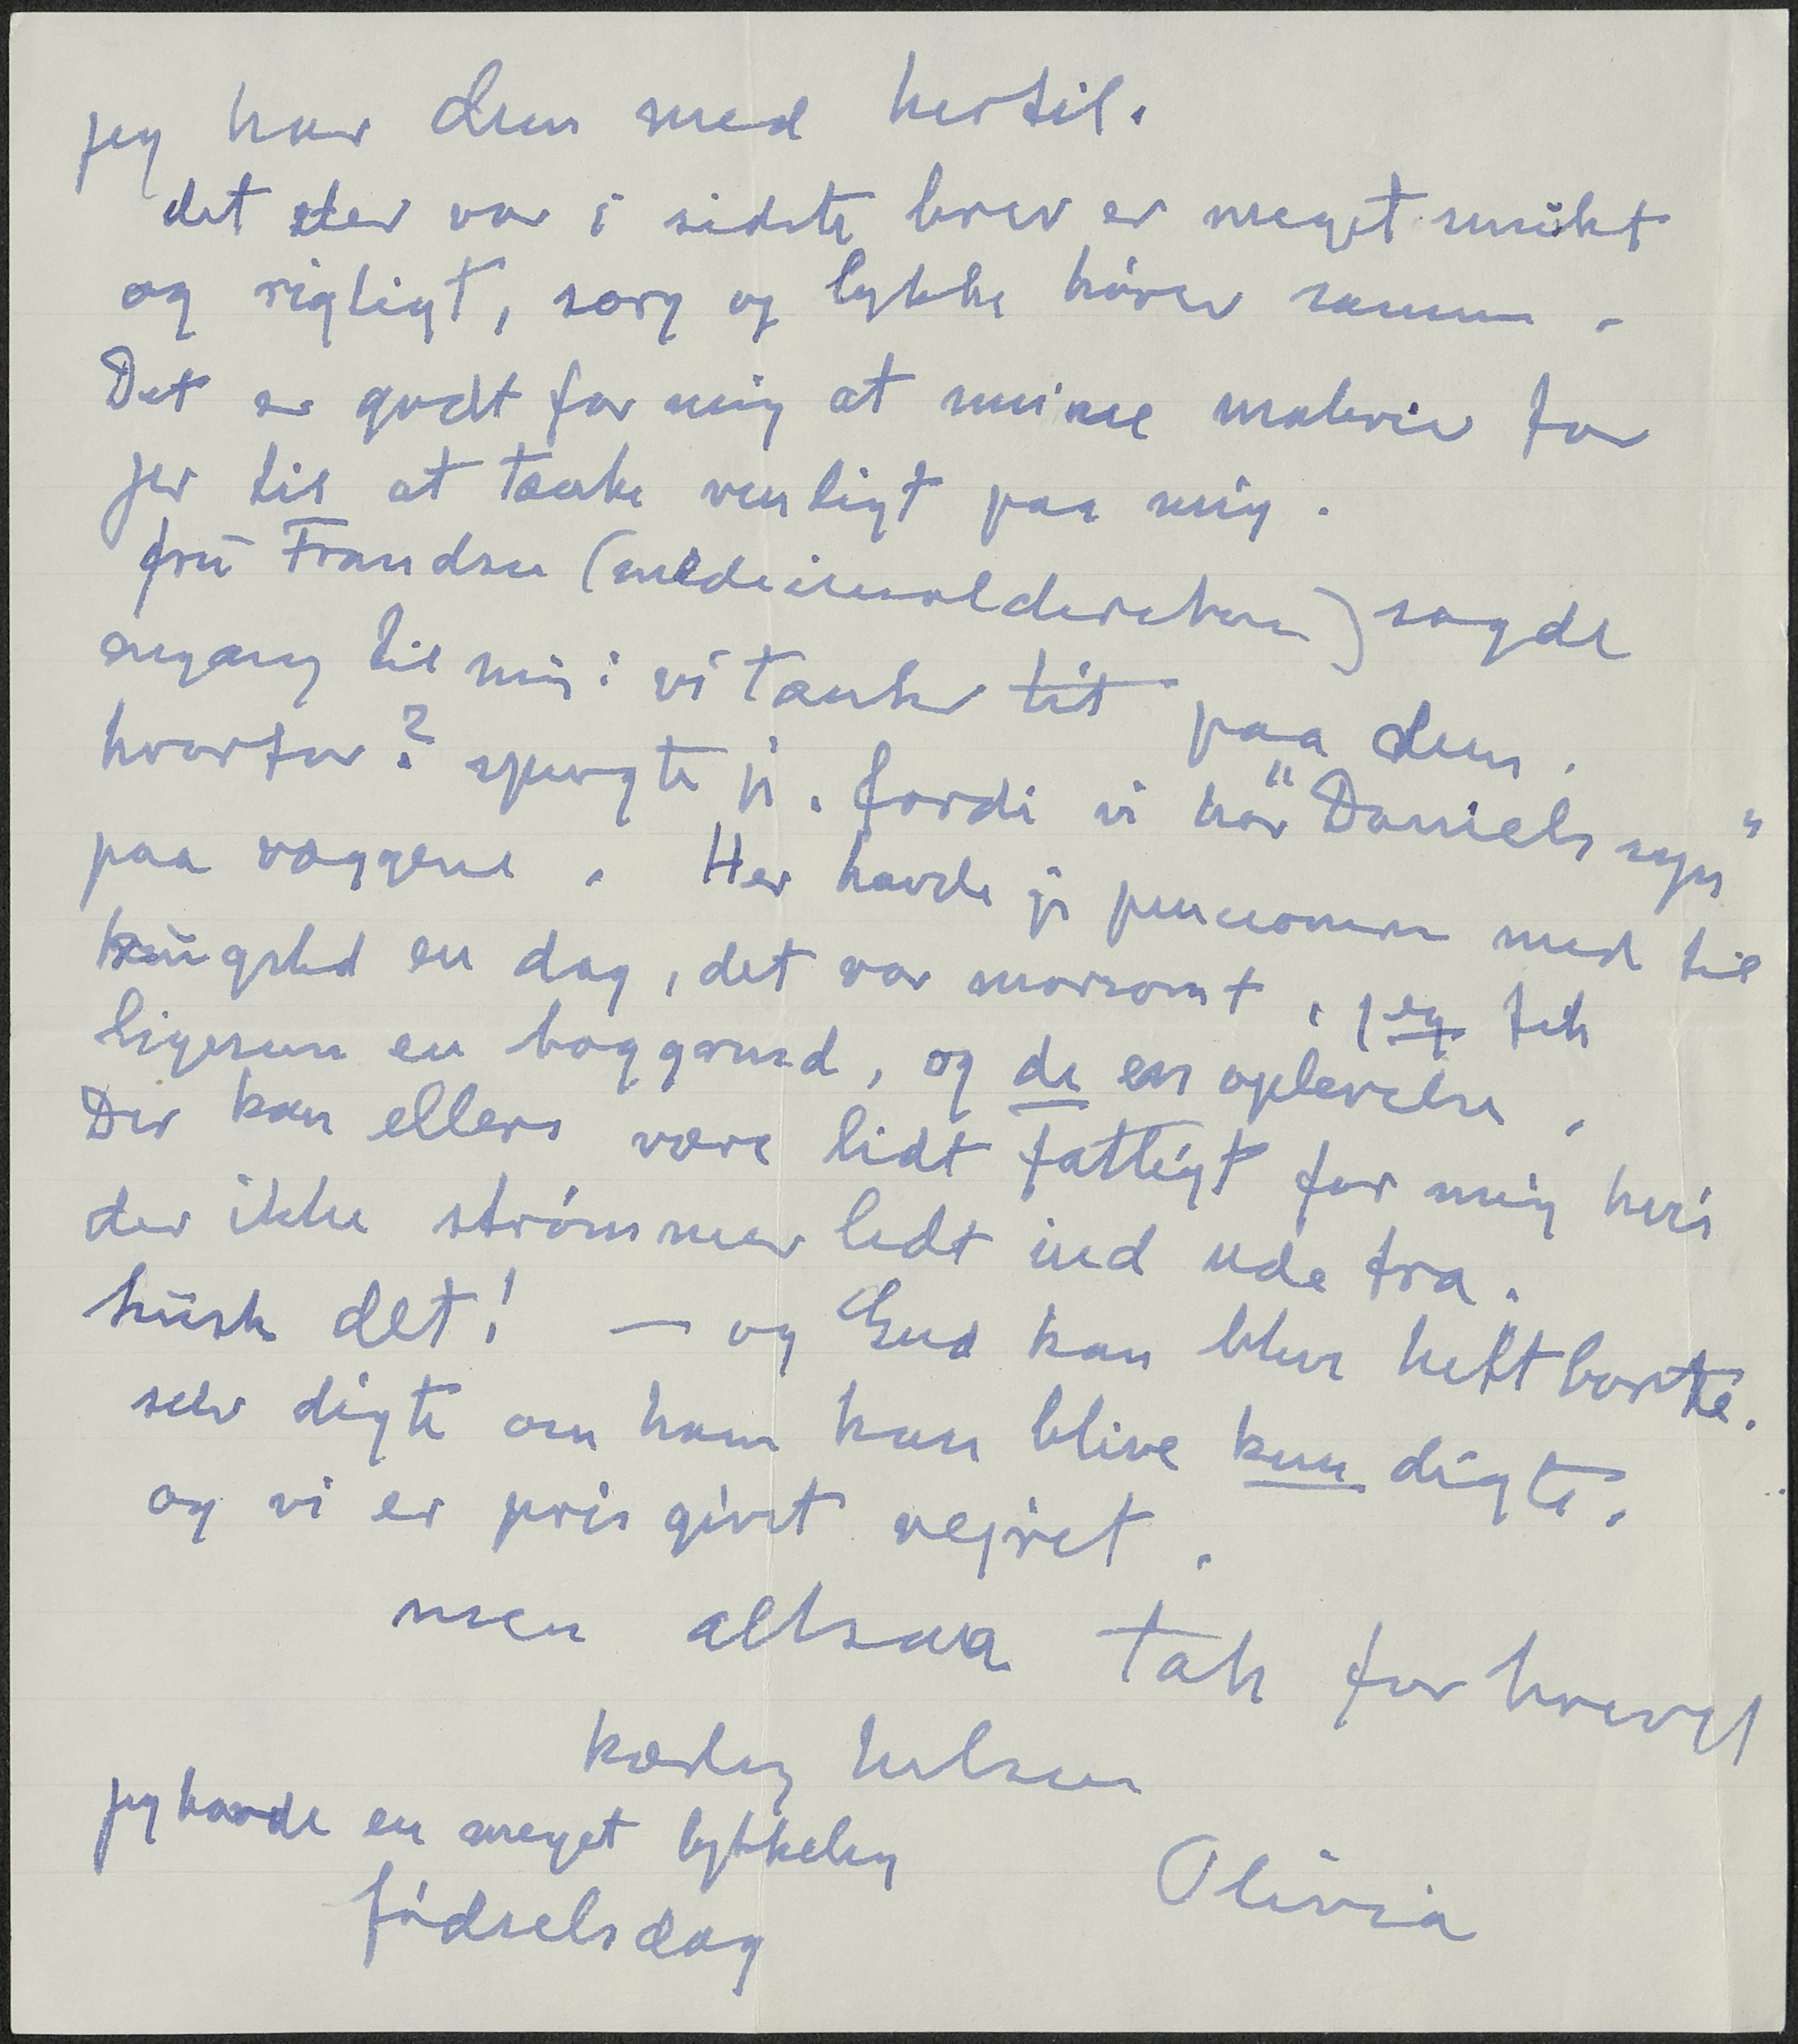 jeg har dem med hertil.
det der var i sidste brev er meget smukt
og rigtigt, sorg og lykke hører sammen.
Det er godt for mig at mine malerier for
jer til at tænke venligt paa mig.
fru Frandsen (medicinaldirektøren) sagde
engang til mig: vi tænker tit paa dem.
hvorfor? spurgte jeg. fordi vi har "Daniels syn"
paa væggene. Her havde jeg pensionærerne med til
en dag, det var morsomt, jeg fik
ligesom en baggrund, og de en oplevelse.
Der kan ellers være lidt fattigt for mig hvis
der ikke strømmer lidt ind ude fra.
husk det! — og Gud kan blive helt borte.
selv digte om ham kan blive kun digte.
og vi er prisgivet vejret.
men altsaa tak for brevet
kærlig hilsen
jeg havde en meget lykkelig
fødselsdag
Olivia